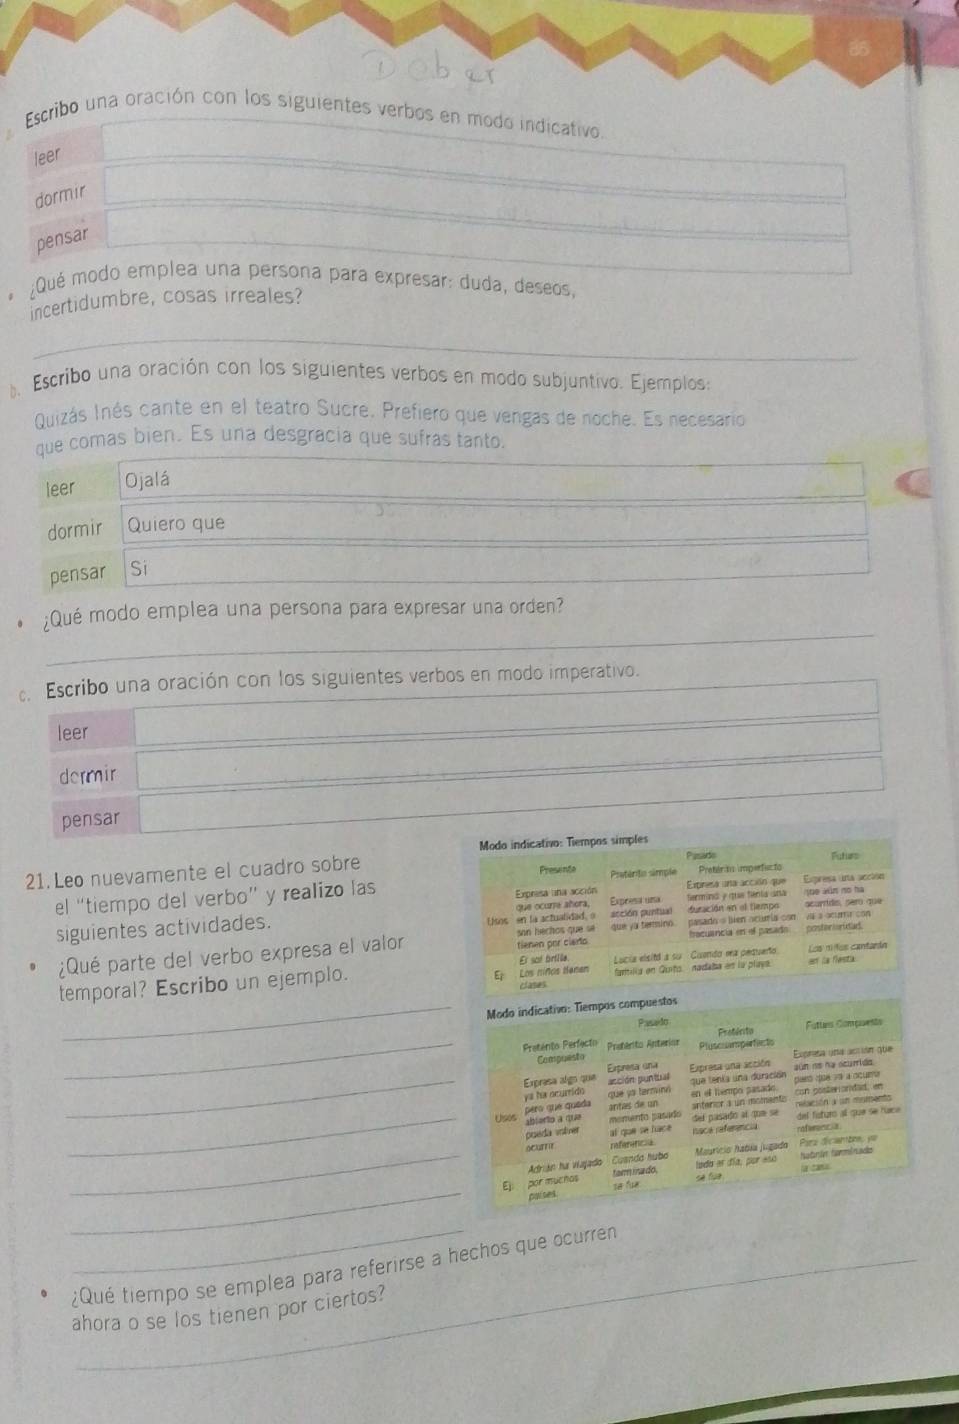 85
Deber
Escribo una oración con los siguientes verbos en modo indicativo.
leer
dormir
pensar
• ¿Qué modo emplea una persona para expresar: duda, deseos,
incertidumbre, cosas irreales?
b. Escribo una oración con los siguientes verbos en modo subjuntivo. Ejemplos:
Quizás Inés cante en el teatro Sucre. Prefiero que vengas de noche. Es necesario
que comas bien. Es una desgracia que sufras tanto.
leer Ojalá
dormir Quiero que
pensar Si
• ¿Qué modo emplea una persona para expresar una orden?
c. Escribo una oración con los siguientes verbos en modo imperativo.
leer
dormir
pensar
21. Leo nuevamente el cuadro sobre
el "tiempo del verbo" y realizo las
siguientes actividades.
• ¿Qué parte del verbo expresa el valor
temporal? Escribo un ejemplo.
Modo indicativo: Tiempos simples
Pasado
Presente Pretérito simple Pretérito imperfecto Futuro
Usos
Expresa una acción
que ocurre ahora,
en la actualidad, o
son hechos que se
tienen por cierto.
Expresa una
acción puntual
que ya terminó.
Expresa una acción que
terminó y que tenía una
duración en el tiempo
pasado o bien ocurría con
frecuencia en el pasado.
Expresa una acción
que aún no ha
ocurrido, pero que
va a ocurrir con
posterioridad.
Ej:
El sol brilla.
Los niños tienen
clases.
Lucía visitó a su
familia en Quito.
Cuando era pequeño,
nadaba en la playa.
Los niños cantarán
en la fiesta.
Modo indicativo: Tiempos compuestos
Pasado
Pretérito Perfecto
Compuesto
Pretérito Anterior
Pretérito
Pluscuamperfecto
Futuro Compuesto
Usos
Expresa algo que
ya ha ocurrido
pero que queda
abierto a que
pueda volver
ocurrir.
Expresa una
acción puntual
que ya terminó
antes de un
momento pasado
al que se hace
referencia.
Expresa una acción
que tenía una duración
en el tiempo pasado,
anterior a un momento
del pasado al que se
hace referencia.
Expresa una acción que
aún no ha ocurrido,
pero que va a ocurrir
con posterioridad, en
relación a un momento
del futuro al que se hace
referencia.
Ej:
Adrián ha viajado
por muchos
países.
Cuando hubo
terminado,
se fue.
Mauricio había jugado
todo el día, por eso
se fue.
Para diciembre, ya
habrán terminado
la casa.
• ¿Qué tiempo se emplea para referirse a hechos que ocurren
ahora o se los tienen por ciertos?